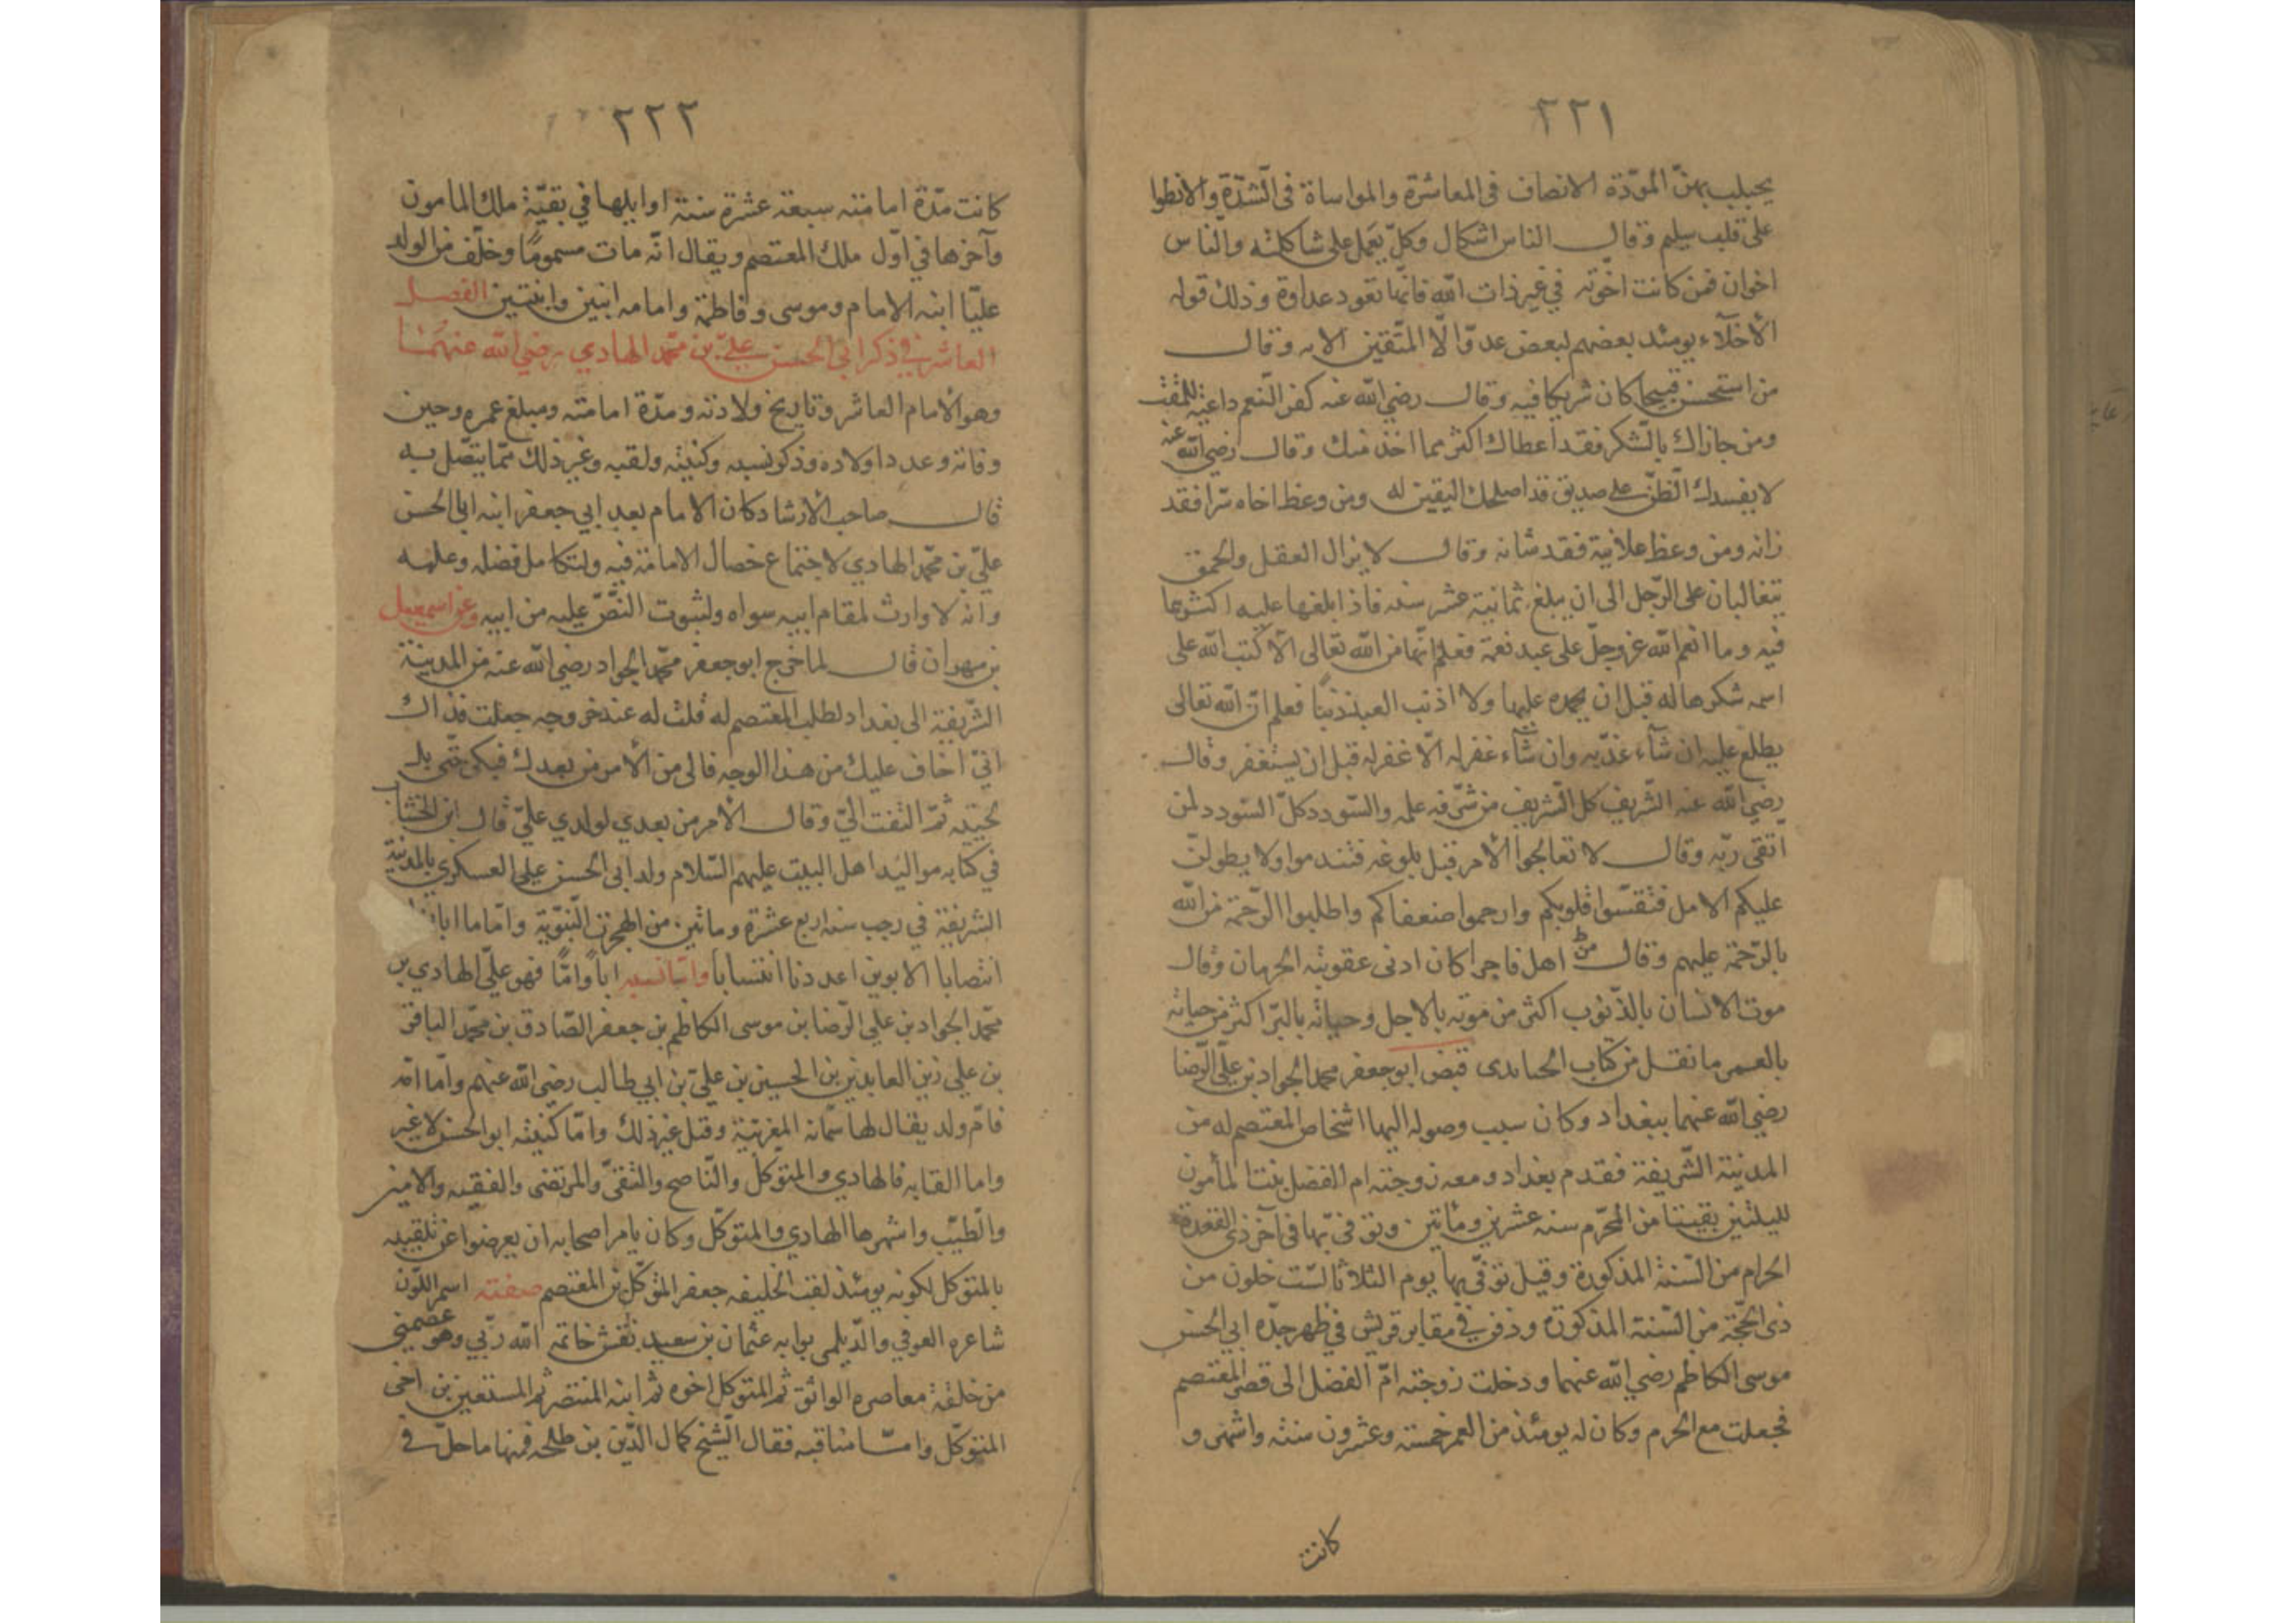 ٢٢١
يجلب بهنّ المودّة الانصاف في المعاشرة والمواساة في الشدّة والانطوا
على قلب سليم وقال الناس اشكال وكلّ يعمل على شاكلته والناس
اخوان فمن كانت اخوّته في غير ذات الله فانّها تعود عداوة وذلك قوله
الأخلاّء يومئذ بعضهم لبعض عدوّ الّا المتّقين الايه وقال
من استحسن قبيحا كان شريكا فيه وقال رضي الله عنه كفر النّعم داعية للمقت
ومن جازاك بالشّكر فقد اعطاك اكثر مما اخذ منك وقال رضي الله عنه
لا يفسدك الظنّ على صديق قد اصلحك اليقين له ومن وعظ اخاه سرّا فقد
زانه ومن وعظ علانية فقد شانه وقال لا يزال العقل والحمق
يتغالبان على الرّجل الى ان يبلغ ثمانية عشر سنه فاذا بلغها غلب عليه اكثرهما
فيه وما انعم الله عزوجلّ على عبد نعمة فعلم انّها من الله تعالى الّا كتب الله على
اسمه شكرها له قبل ان يحمده عليها ولا اذنب العبد ذنبًا فعلم انّ الله تعالى
يطلع عليه ان شآء عذّبه وان شآء غفر له الّا غفر له قبل ان يستغفر وقال
رضي الله عنه الشّريف كل الشّريف من شرّفه علمه والسّودد كلّ السّودد لمن
اتقى ربّه وقال لا تعالجوا الأمر قبل بلوغه فتندموا ولا يطولنّ
عليكم الامل فتقسّوا قلوبكم وارحموا ضعفاكم واطلبوا الرّحمة من الله
بالرّحمة عليهم وقال من اهل فاجرا كان ادنى عقوبته الحرمان وقال
موت الانسان بالذّنوب اكثر من موته بالاجل وحياته بالبرّ اكثر من حياته
بالعمر ما نقل من كتاب قبض ابو جعفر محمد الجواد بن عليّ الرّضا
رضي الله عنهما ببغداد وكان سبب وصوله اليها اشخاص المعتصم له من
المدينة الشّريفة فقدم بغداد ومعه زوجته ام الفضل بنت المأمون
لليلتين بقيتا من المحرّم سنه عشرين ومأتين وتوفّي بها في آخر ذي القعدة
الحرام من السّنة المذكورة وقيل توفّي بها يوم الثلاثا لستّ خلون من
ذي الحجّة من السّنة المذكورة ودفن في مقابر قريش في ظهر جدّه ابي الحسن
موسى الكاظم رضي الله عنهما ودخلت زوجته امّ الفضل الى قصر المعتصم
فجعلت مع الحرم وكان له يومئذ من العمر خمسة وعشرون سنة واشهر و
كانت
٢٢٢
كانت مدّة امامته سبعة عشرة سنة اوايلها في بقيّة ملك المامون
وآخرها في اوّل ملك المعتصم ويقال انّه مات مسمومًا وخلّف من الولد
عليّا ابنه الامام وموسى وفاطمة وامامه ابنين وابنتين الفصل
العاشر في ذكر ابي الحسن عليّ بن محمّد الهادي رضي الله عنهما
وهو الأمام العاشر وتاريخ ولادته ومدّة امامته ومبلغ عمره وحين
وفاته وعدد اولاده وذكر نسبه وكنيته ولقبه وغير ذلك ممّا يتّصل به
قال صاحب الأرشاد كان الامام بعد ابي جعفر ابنه ابي الحسن
عليّ بن محمّد الهادي لاجتماع خصال الامامة فيه ولتكامل فضله وعلمه
وانه لا وارث لمقام ابيه سواه ولثبوت النصّ عليه من ابيه وعن اسمعيل
بن مهران قال لما خرج ابو جعفر محمّد الجواد رضي الله عنه من المدينة
الشّريفة الى بغداد لطلب المعتصم له قلت له عند خروجه جعلت فداك
انّي اخاف عليك من هذا الوجه فالى من الأمر من بعدك فبكى حتّى بلّ
لحيته ثمّ التفت اليّ وقال الأمر من بعدي لولدي عليّ قال ابن الخشاب
في كتابه مواليد اهل البيت عليهم السّلام ولد ابي الحسن علي العسكري بالمدينة
الشريفة في رجب سنة اربع عشرة ومائتين من الهجرة النّبويّة وامّا
انتصابا الابوين اعددنا انتسابا وامّا نسبه اباً وامّاً فهو عليّ الهادي بن
محمّد الجواد بن علي الرّضا بن موسى الكاظم بن جعفر الصّادق بن محمّد الباقر
بن علي زين العابدين بن الحسين بن عليّ بن ابي طالب رضي الله عنهم وامّا امّه
فامّ ولد يقال لها سمّانه المغربيّة وقيل غير ذلك وامّا كنيته ابو الحسن لا غير
واما القابه فالهادي والمتوكّل والنّاصح والتّقيّ والمرتضى والفقيه والامين
والطيّب واشهرها الهادي والمتوكّل وكان يامر اصحابه ان يعرضوا عن تلقيبه
بالمتوكل لكونه يومئذ لقب الخليفه جعفر المتوكّل بن المعتصم صفته اسمر اللّون
شاعره العوفي والدّيلمي بوابه عثمان بن سعيد نقش خاتمه الله ربّي وهو عصمتي
من خلقه معاصره الواثق ثم المتوكّل اخوه ثم ابنه المنتصر ثم المستعين بن اخي
المتوكّل وامّا مناقبه فقال الشّيخ كمال الدّين بن طلحه فمنها ما حلّ في